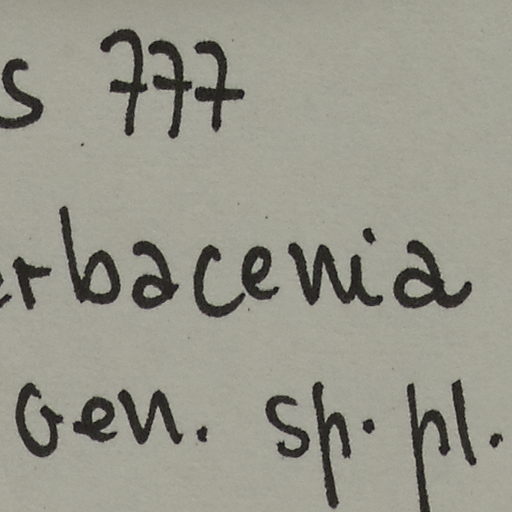 s 777
erbacenia
Gen. sp. pl.